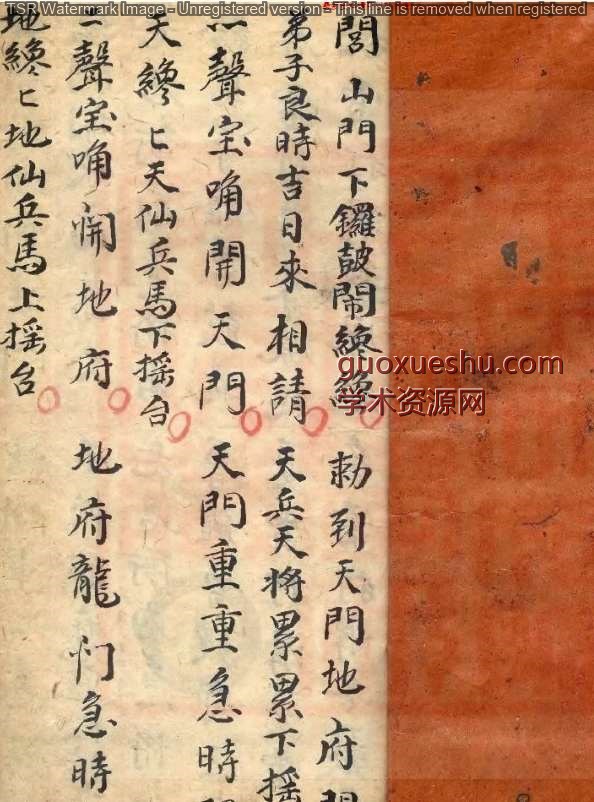 TSR Watermark Image - Unregistered version - This line is removed when registered
閭山門下鑼鼓鬧 勅到天門地府門
弟子良時吉日來相請 天兵天將累累下搖
一聲宝角開天門 天門重重急時
天纔〻天仙兵馬下搖台
一聲宝角開地府 地府龍门急時
地纔〻地仙兵馬上搖台
guoxueshu.com
学术资源网